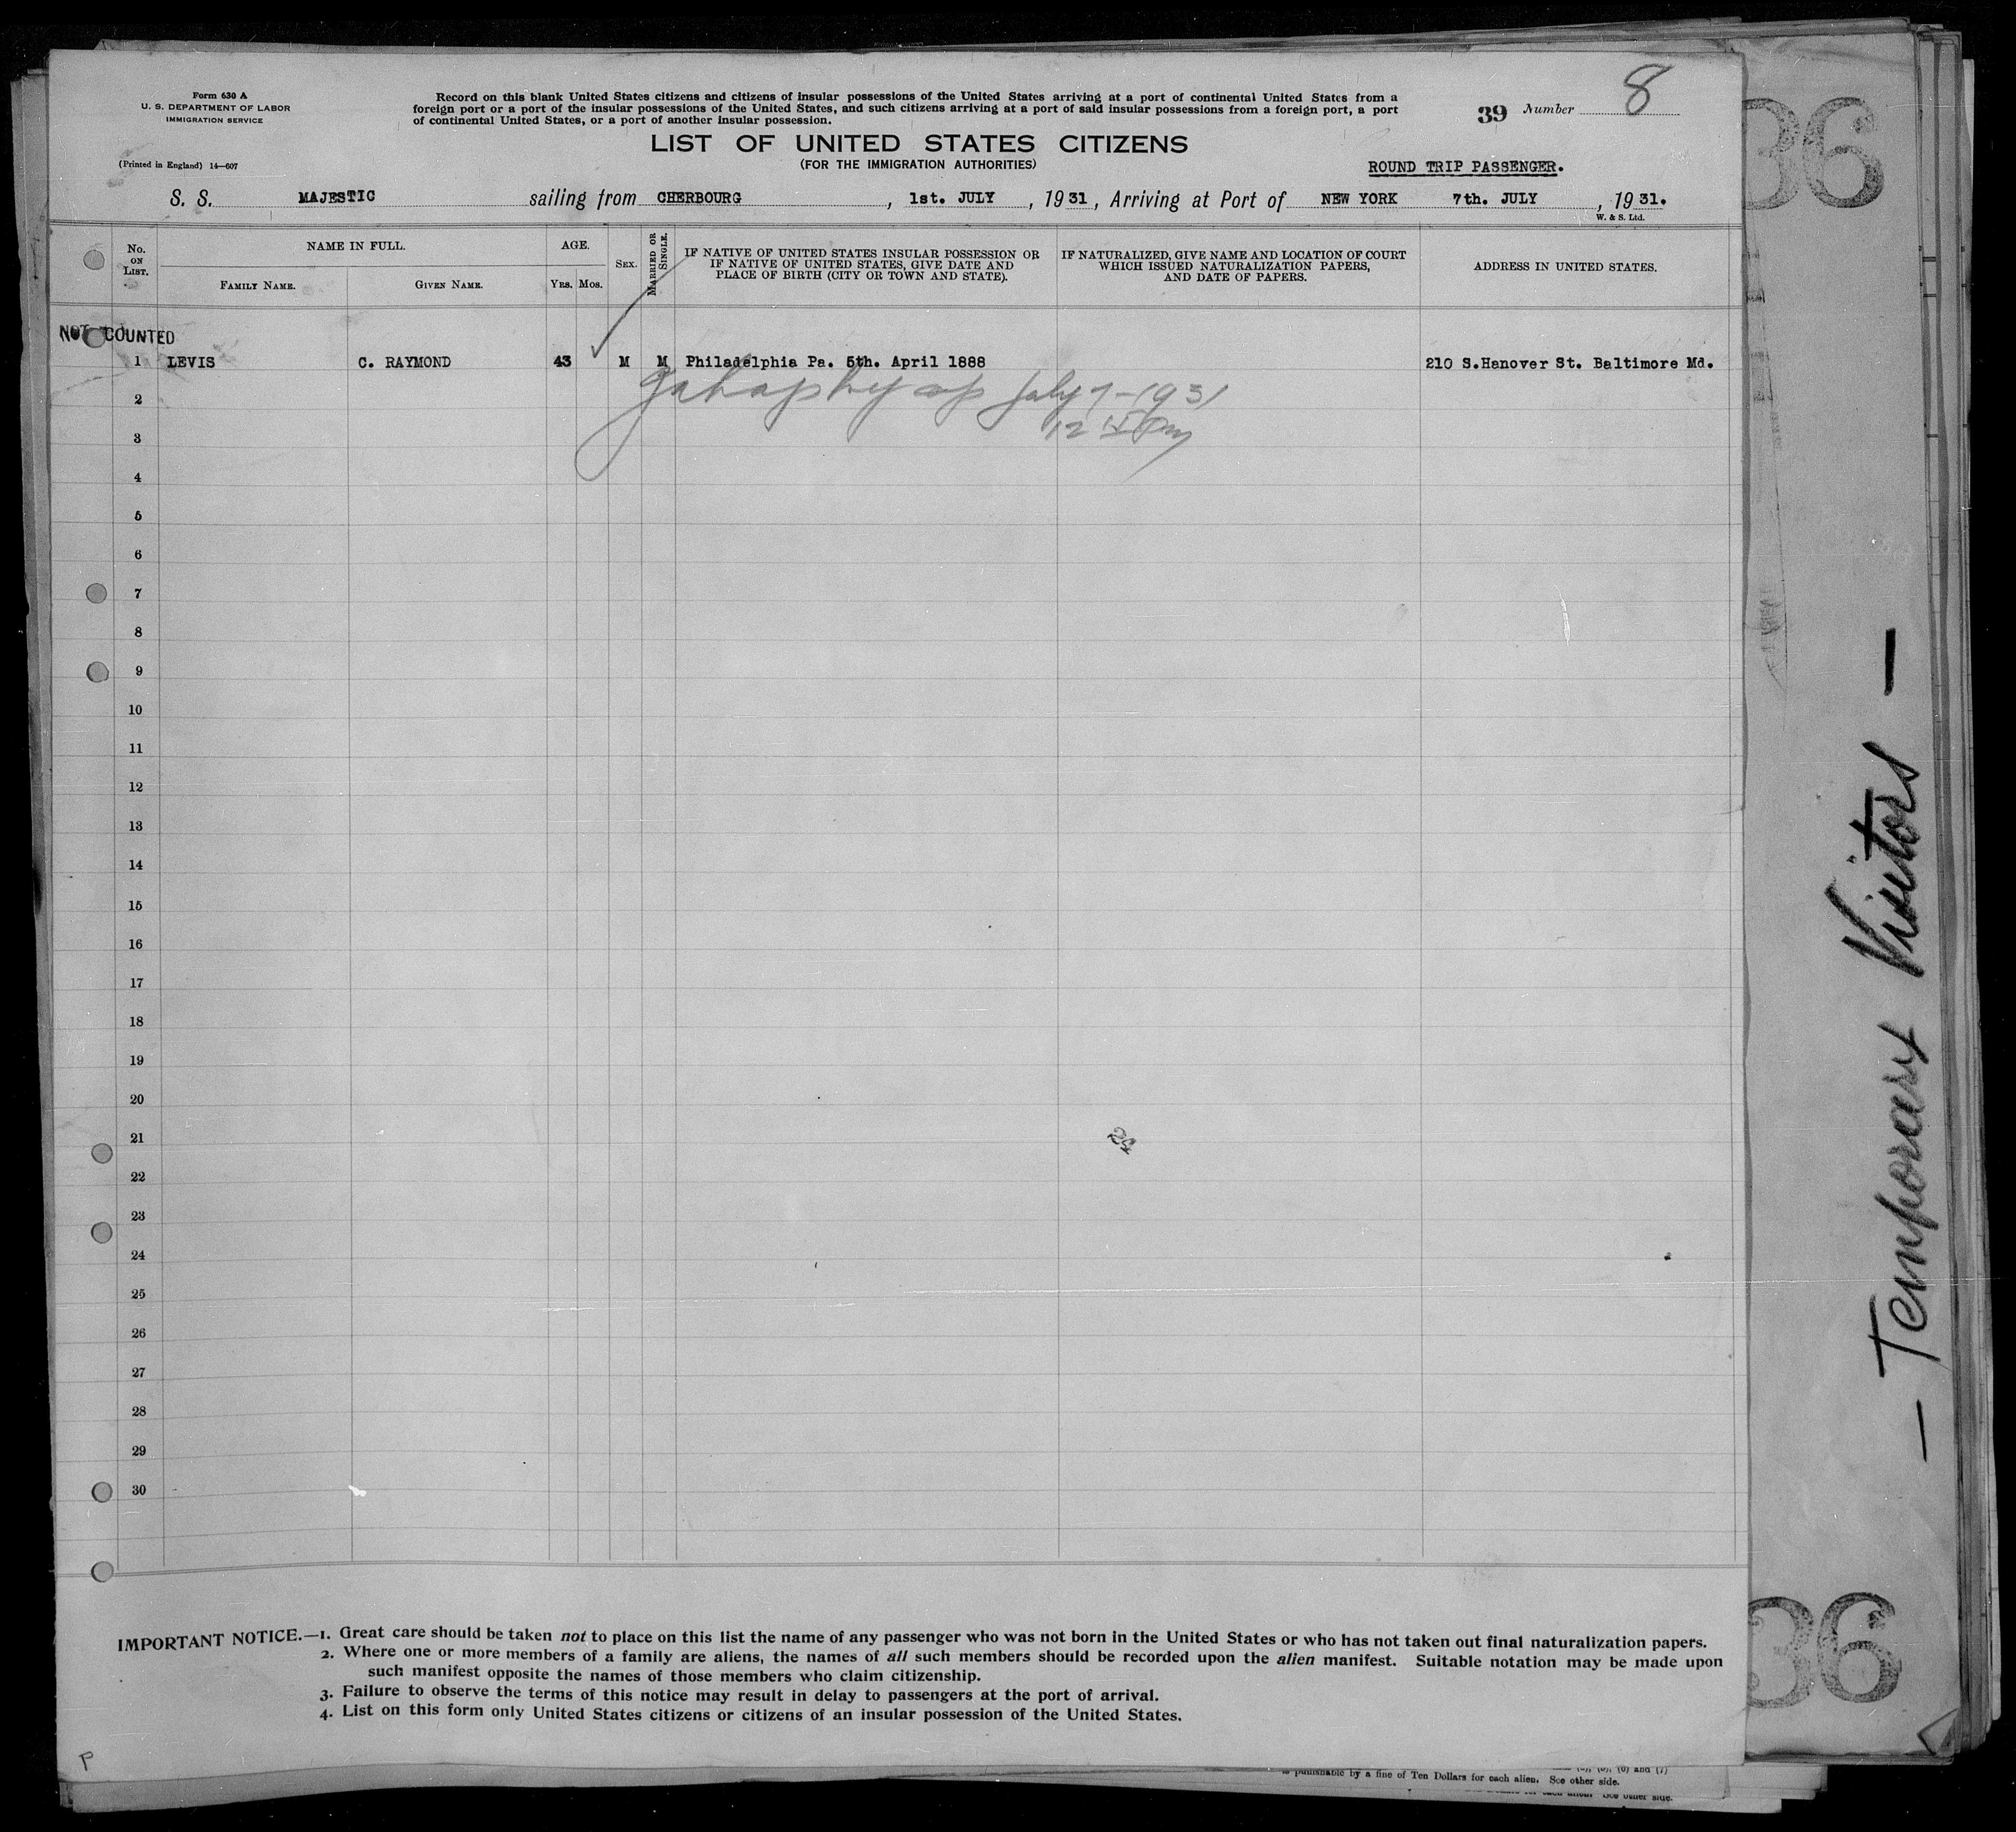 Form 630 A
U. S. DEPARTMENT OF LABOR
IMMIGRATION SERVICE
(Printed in England) 14—607
Record on this blank United States citizens and citizens of insular possessions of the United States arriving at a port of continental United States from a
foreign port or a port of the insular possessions of the United States, and such citizens arriving at a port of said insular possessions from a foreign port, a port
of continental United States, or a port of another insular possession.
39 Number 8
LIST OF UNITED STATES CITIZENS
(FOR THE IMMIGRATION AUTHORITIES)
ROUND TRIP PASSENGER.
S. S. MAJESTIC sailing from CHERBOURG, 1st. JULY, 1931, Arriving at Port of NEW YORK 7th. JULY, 1931.
W. & S. Ltd.
No. ON LIST.
NAME IN FULL.
FAMILY NAME.
GIVEN NAME.
AGE.
YRS. MOS.
SEX.
MARRIED OR SINGLE.
IF NATIVE OF UNITED STATES INSULAR POSSESSION OR
IF NATIVE OF UNITED STATES, GIVE DATE AND
PLACE OF BIRTH (CITY OR TOWN AND STATE).
IF NATURALIZED, GIVE NAME AND LOCATION OF COURT
WHICH ISSUED NATURALIZATION PAPERS,
AND DATE OF PAPERS.
ADDRESS IN UNITED STATES.
NOT COUNTED
1 LEVIS C. RAYMOND 43 M M Philadelphia Pa. 5th. April 1888 210 S.Hanover St. Baltimore Md.
July 7-1931
2
12 Pm
3
4
5
6
7
8
9
10
11
12
13
14
15
16
17
18
19
20
21
22
23
24
25
26
27
28
29
30
IMPORTANT NOTICE.—1. Great care should be taken not to place on this list the name of any passenger who was not born in the United States or who has not taken out final naturalization papers.
2. Where one or more members of a family are aliens, the names of all such members should be recorded upon the alien manifest. Suitable notation may be made upon
such manifest opposite the names of those members who claim citizenship.
3. Failure to observe the terms of this notice may result in delay to passengers at the port of arrival.
4. List on this form only United States citizens or citizens of an insular possession of the United States.
P
is punishable by a fine of Ten Dollars for each alien. See other side.
36
— Temporary Visitors —
36